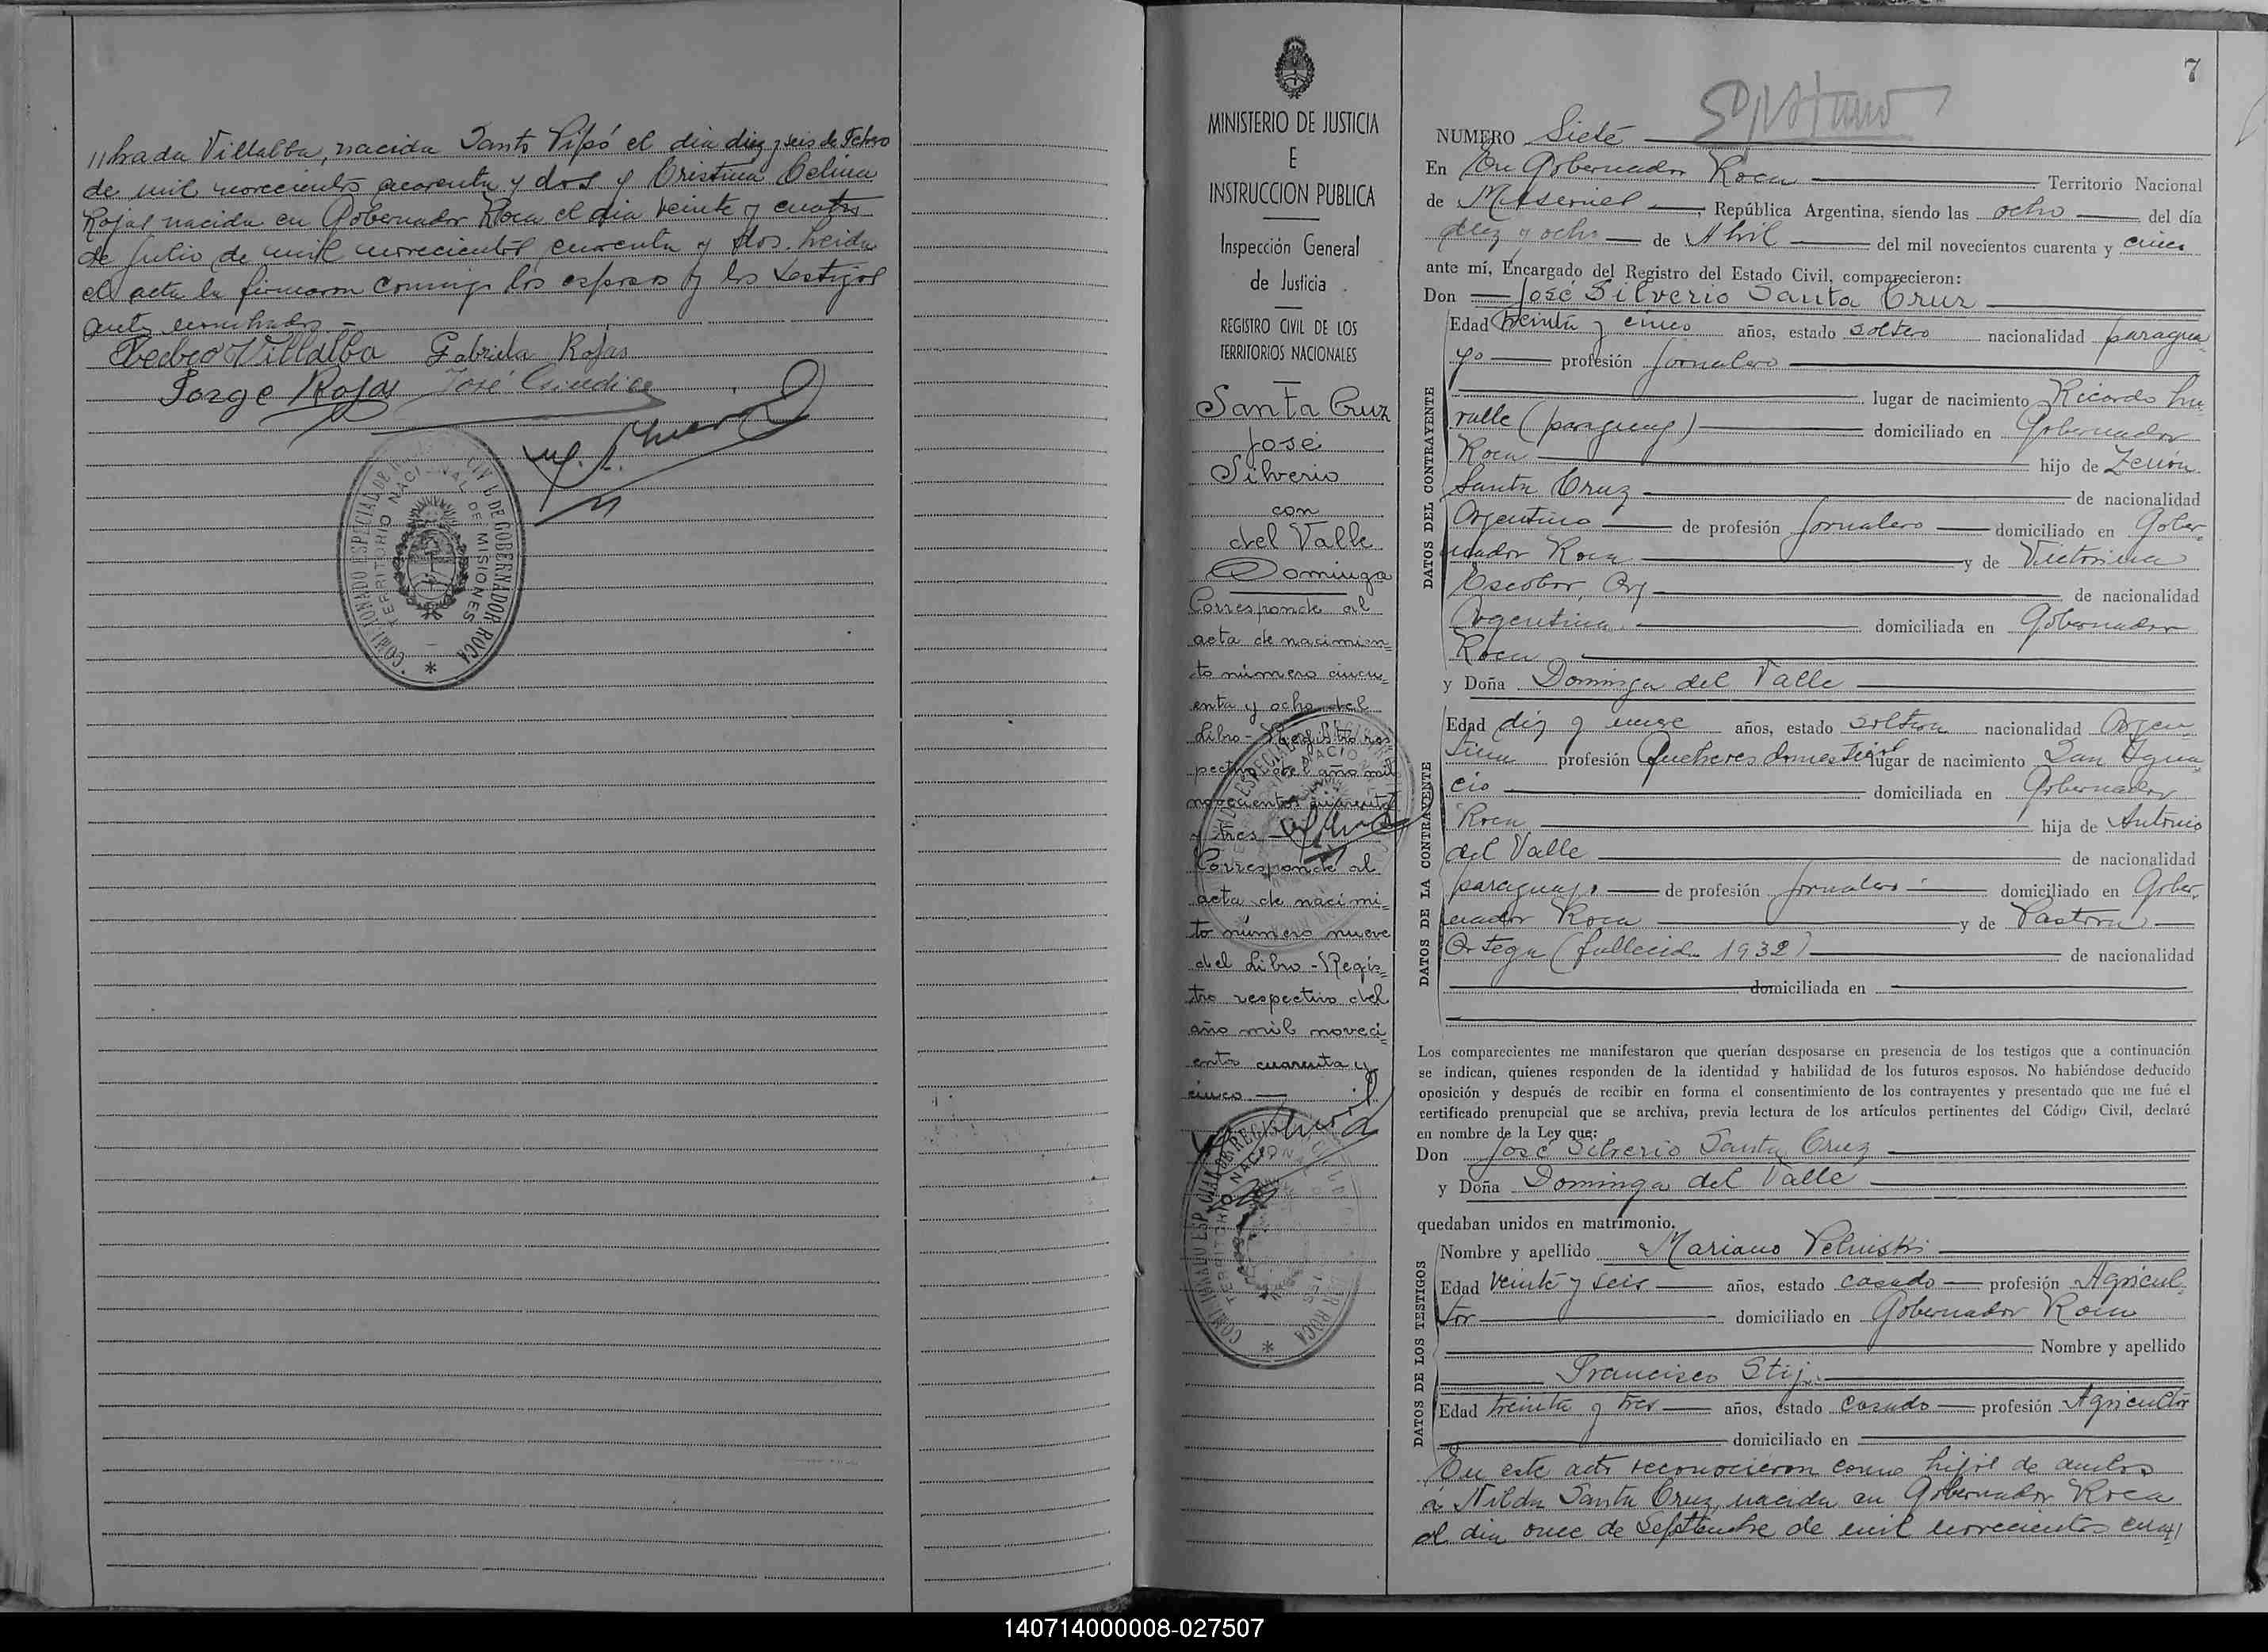 //brada Villalba, nacida Santo Pipó el dia diez y seis de Febrero
de mil novecientos cuarenta y dos y Cristina Celina
Rojas nacida en Gobernador Roca el dia veinte y cuatro
de Julio de mil novecientos cuarenta y dos. Leida
el acta la firmaron conmigo los esposos y los testigos
antes nombrados –
Pedro Villalba Gabriela Rojas
Jorge Rojas José
TERRITORIO NACIONAL DE MISIONES
CIVIL DE GOBERNADOR ROCA
MINISTERIO DE JUSTICIA
E
INSTRUCCION PUBLICA
Inspección General
de Justicia
REGISTRO CIVIL DE LOS
TERRITORIOS NACIONALES
Santa Cruz
José
Silverio
con
del Valle
Dominga
Corresponde al
acta de nacimien=
to número cincu=
enta y ocho del
Libro-Registro res
pectivo del año mil
novecientos cuarenta
y tres
Corresponde al
acta de nacimi=
to número nueve
del Libro-Regis=
tro respectivo del
año mil noveci=
ento cuarenta y
cinco.—
7
NUMERO Siete
En En Gobernador Roca Territorio Nacional
de Misiones, República Argentina, siendo las ocho del día
diez y ocho de Abril del mil novecientos cuarenta y cinco
ante mí, Encargado del Registro del Estado Civil, comparecieron:
Don José Silverio Santa Cruz
DATOS DEL CONTRAYENTE
Edad treinta y cinco años, estado soltero nacionalidad paragua
yo profesión jornalero
lugar de nacimiento Ricardo
(paraguay) domiciliado en Gobernador
Roca hijo de Zenón
Santa Cruz de nacionalidad
Argentino de profesión jornalero domiciliado en Gober
nador Roca y de Victorina
Escobar, Arg de nacionalidad
Argentina domiciliada en Gobernador
Roca
y Doña Dominga del Valle
DATOS DE LA CONTRAYENTE
Edad diez y nueve años, estado soltera nacionalidad Argen
tina profesión Quehaceres domesticos lugar de nacimiento San Igna
cio domiciliada en Gobernador
Roca hija de Antonio
del Valle de nacionalidad
paraguayo de profesión jornalero domiciliado en Gober
nador Roca y de Pastora
Ortega (fallecida 1932) de nacionalidad
domiciliada en
Los comparecientes me manifestaron que querían desposarse en presencia de los testigos que a continuación
se indican, quienes responden de la identidad y habilidad de los futuros esposos. No habiéndose deducido
oposición y después de recibir en forma el consentimiento de los contrayentes y presentado que me fué el
certificado prenupcial que se archiva, previa lectura de los artículos pertinentes del Código Civil, declaré
en nombre de la Ley que:
Don José Silverio Santa Cruz
y Doña Dominga del Valle
quedaban unidos en matrimonio.
DATOS DE LOS TESTIGOS
Nombre y apellido Mariano Pelniski
Edad veinte y seis años, estado casado profesión Agricul
tor domiciliado en Gobernador Roca
Nombre y apellido
Francisco Stij
Edad treinta y tres años, estado casado profesión Agricultor
domiciliado en
En este acto reconocieron como hijos de ambos
a Nilda Santa Cruz, nacida en Gobernador Roca
el dia once de Septiembre de mil novecientos cua//
140714000008-027507